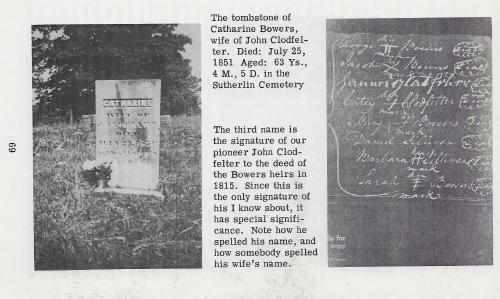 The tombstone of
Catharine Bowers,
wife of John Clodfel-
ter. Died: July 25,
1851 Aged: 63 Ys.,
4 M., 5 D. in the
Sutherlin Cemetery
The third name is
the signature of our
pioneer John Clod-
felter to the deed of
the Bowers heirs in
1815. Since this is
the only signature of
his I know about, it
has special signifi-
cance. Note how he
spelled his name, and
how somebody spelled
his wife's name.
69
CATHARINE
WIFE OF
Bowers
Jacob Bowers
Catey Clodfelter
Bowers
mark
Daniel Sullivan
Barbara Sullivan
mark
Sarah Bowers
mark